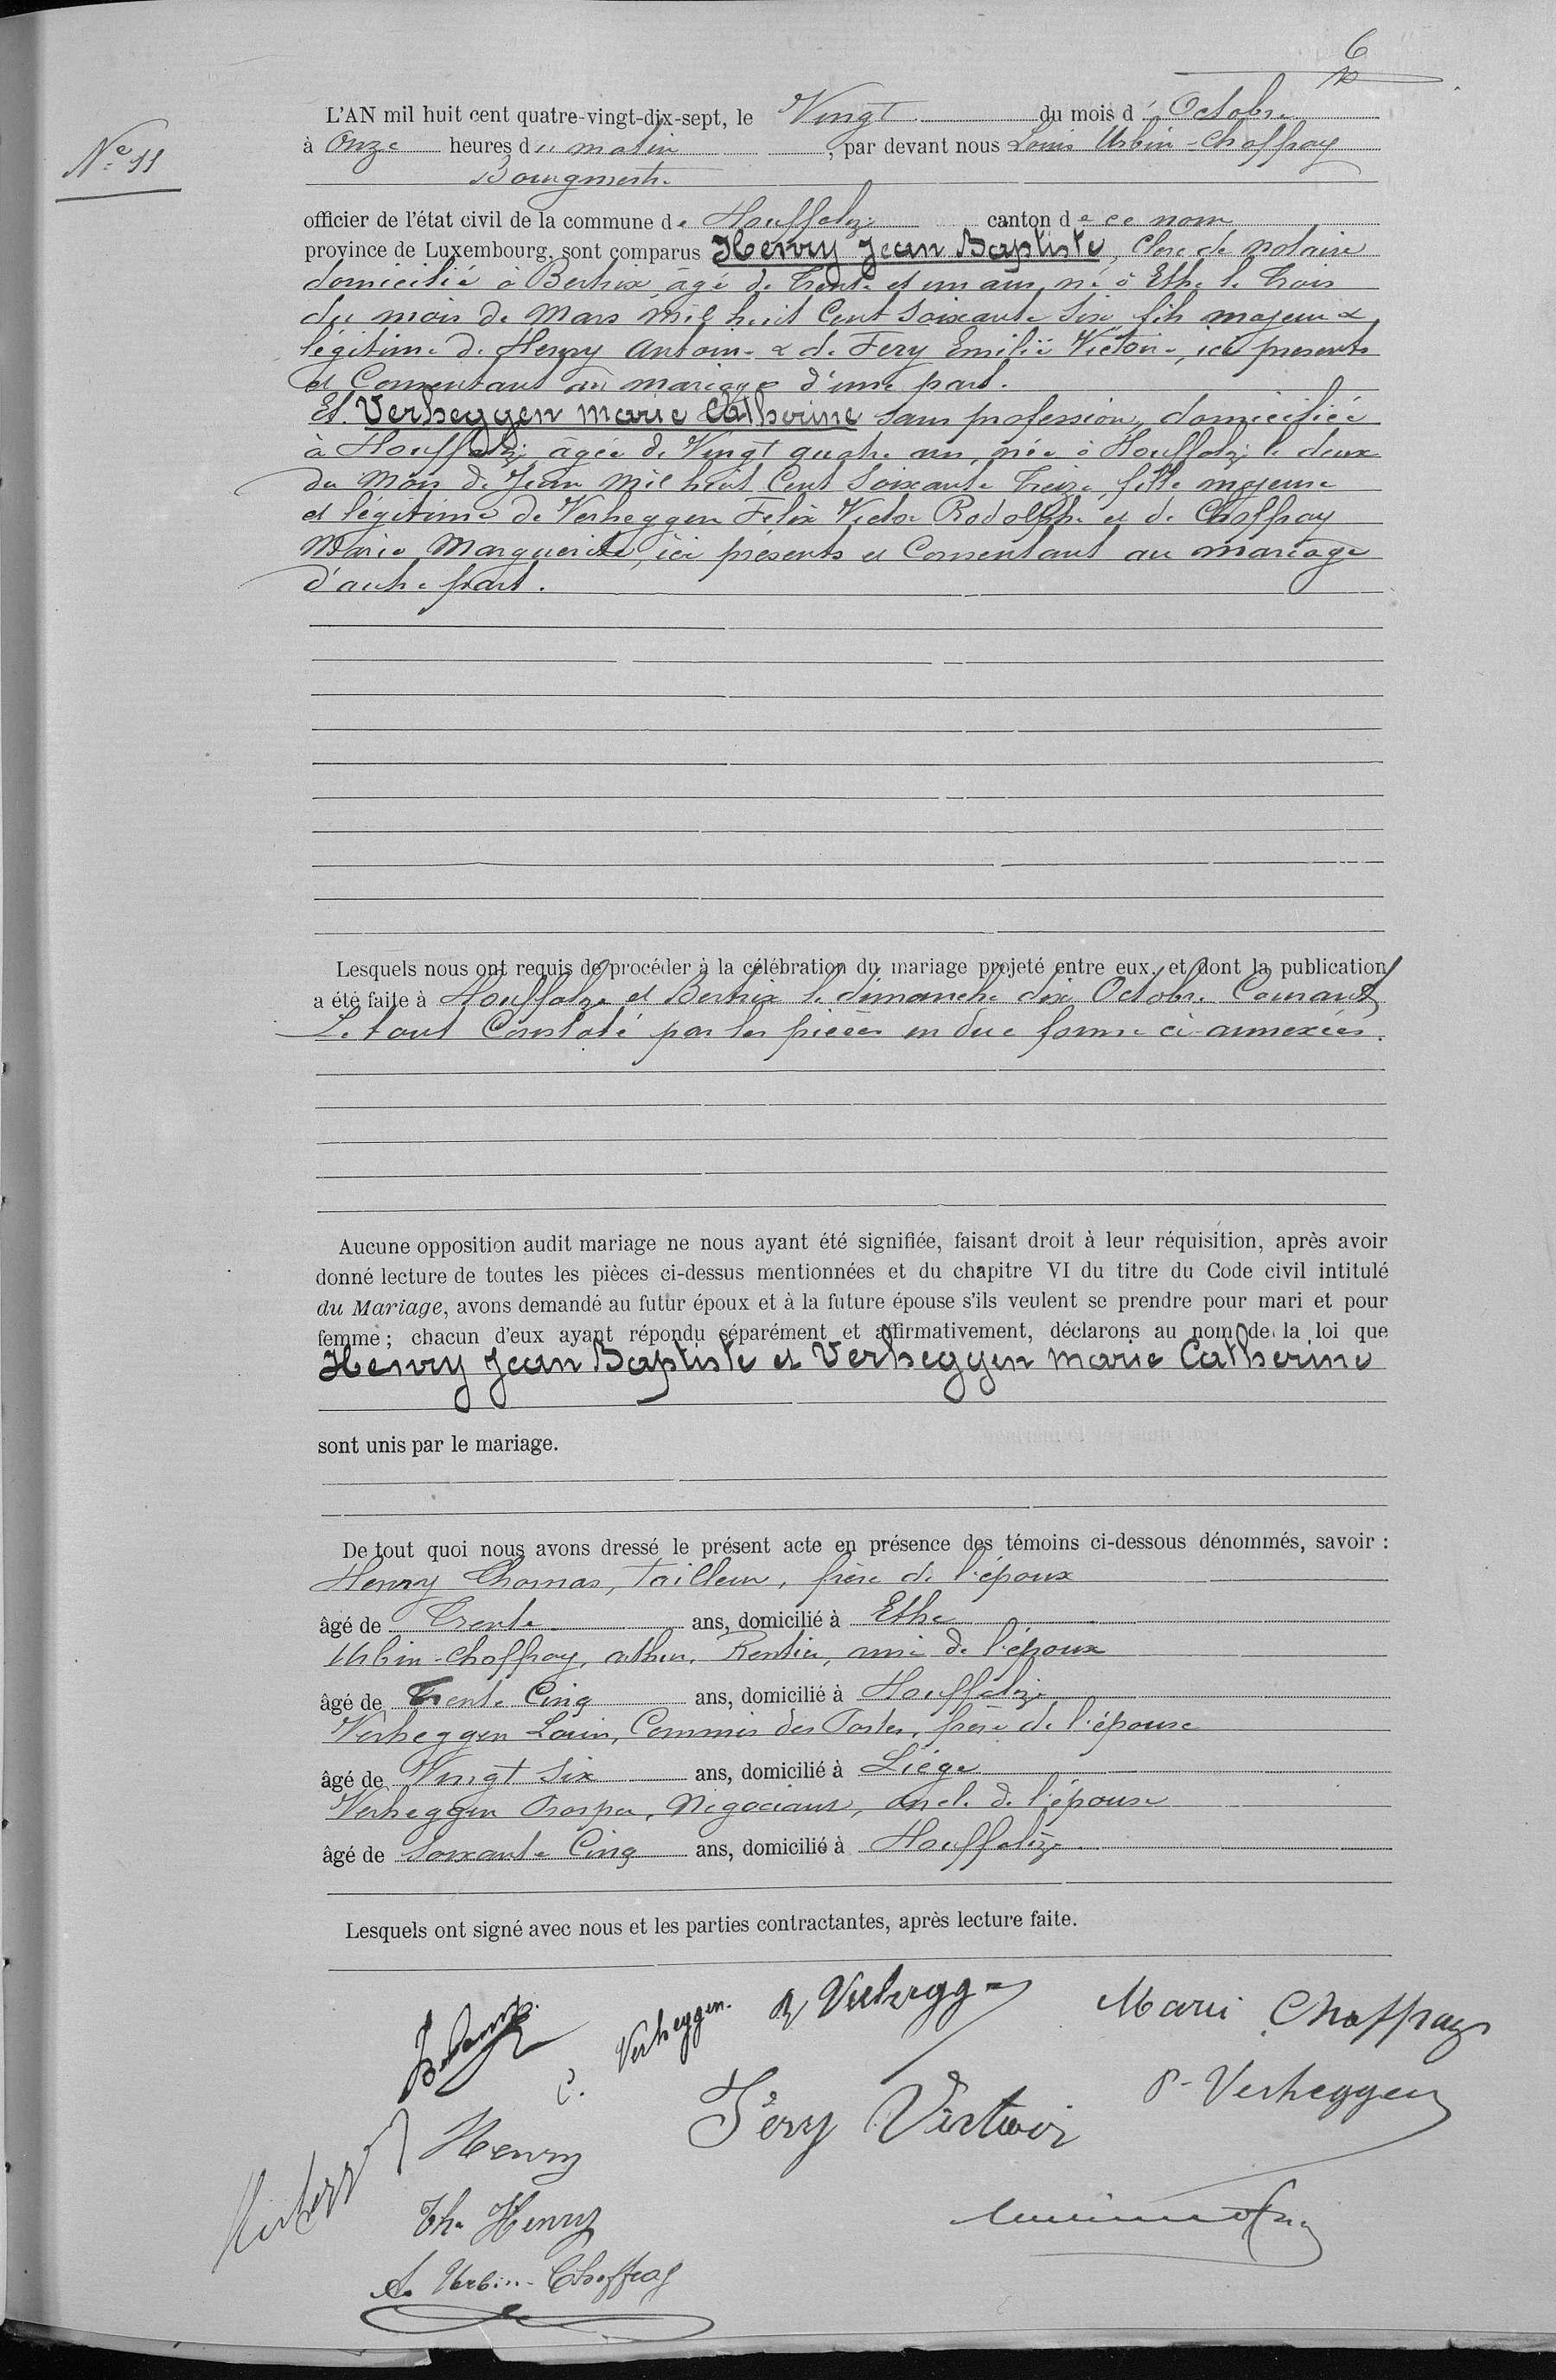 6
Nº 11
L'AN mil huit cent quatre-vingt-dix-sept, le Vingt du mois d' Octobre
à Onze heures du matin, par devant nous Louis Urbin-Choffray
Bourgmestre
officier de l'état civil de la commune de Houffalize canton de ce nom
province de Luxembourg, sont comparus Henry Jean Baptiste, Clerc de notaire
domicilié à Bertrix âgé de Trente et un ans, né à Ethe le Trois
du mois de Mars mil huit Cent Soixante Six fils majeur &
légitime de Henry Antoine & de Fery Emilie Victoire, ici présents
et Consentant au mariage d'une part.
Et Verheggen Marie Catherine sans profession, domiciliée
à Houffalize âgée de Vingt quatre ans, née à Houffalize le deux
du Mois de Juin mil huit Cent Soixante Treize, fille majeure
et légitime de Verheggen Felix Victor Rodolphe et de Choffray
Marie Marguerite, ici présents et Consentant au mariage
d'autre part.
Lesquels nous ont requis de procéder à la célébration du mariage projeté entre eux, et dont la publication
a été faite à Houffalize et Bertrix le dimanche dix Octobre Courant
Le tout Constaté par les pièces en due forme ci-annexées.
Aucune opposition audit mariage ne nous ayant été signifiée, faisant droit à leur réquisition, après avoir
donné lecture de toutes les pièces ci-dessus mentionnées et du chapitre VI du titre du Code civil intitulé
du Mariage, avons demandé au futur époux et à la future épouse s'ils veulent se prendre pour mari et pour
femme ; chacun d'eux ayant répondu séparément et affirmativement, déclarons au nom de la loi que
Henry Jean Baptiste et Verheggen Marie Catherine
sont unis par le mariage.
De tout quoi nous avons dressé le présent acte en présence des témoins ci-dessous dénommés, savoir :
Henry Thomas, Tailleur, frère de l'époux
âgé de Trente ans, domicilié à Ethe
Urbin-Choffray, Arthur, Rentier, ami de l'époux
âgé de Trente Cinq ans, domicilié à Houffalize
Verheggen Louis, Commis des Postes, frère de l'épouse
âgé de Vingt Six ans, domicilié à Liége
Verheggen Prosper, Négociant, oncle de l'épouse
âgé de Soixante Cinq ans, domicilié à Houffalize
Lesquels ont signé avec nous et les parties contractantes, après lecture faite.
C. Verheggen. R Verhegg Marie Choffray
P. Verheggen
Henry Féry Victoir
Th. Henry
A. Urbin-Choffray